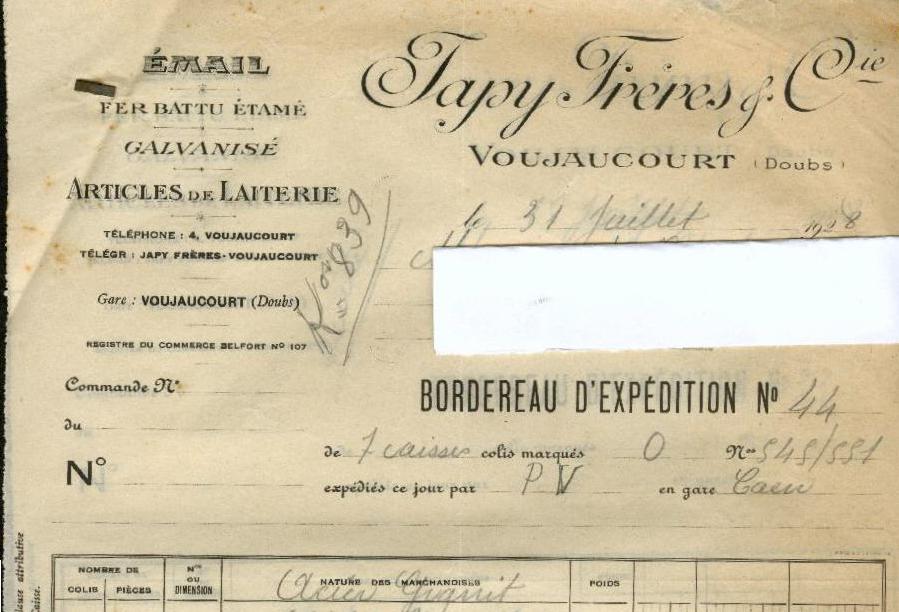 ÉMAIL
FER BATTU ÉTAMÉ
GALVANISÉ
ARTICLES DE LAITERIE
TÉLÉPHONE : 4, VOUJAUCOURT
TÉLÉGR : JAPY FRÈRES-VOUJAUCOURT
Gare : VOUJAUCOURT (Doubs)
REGISTRE DU COMMERCE BELFORT Nº 107
839
Japy Frères & Cie
VOUJAUCOURT (Doubs)
le 31 Juillet 1928
Commande Nº
du
Nº
BORDEREAU D'EXPÉDITION Nº 44
de 7 caisses colis marqués O Nos 545/551
expédiés ce jour par P V en gare Caen
NOMBRE DE
COLIS PIÈCES
Nos OU DIMENSION
NATURE DES MARCHANDISES
POIDS
Acier